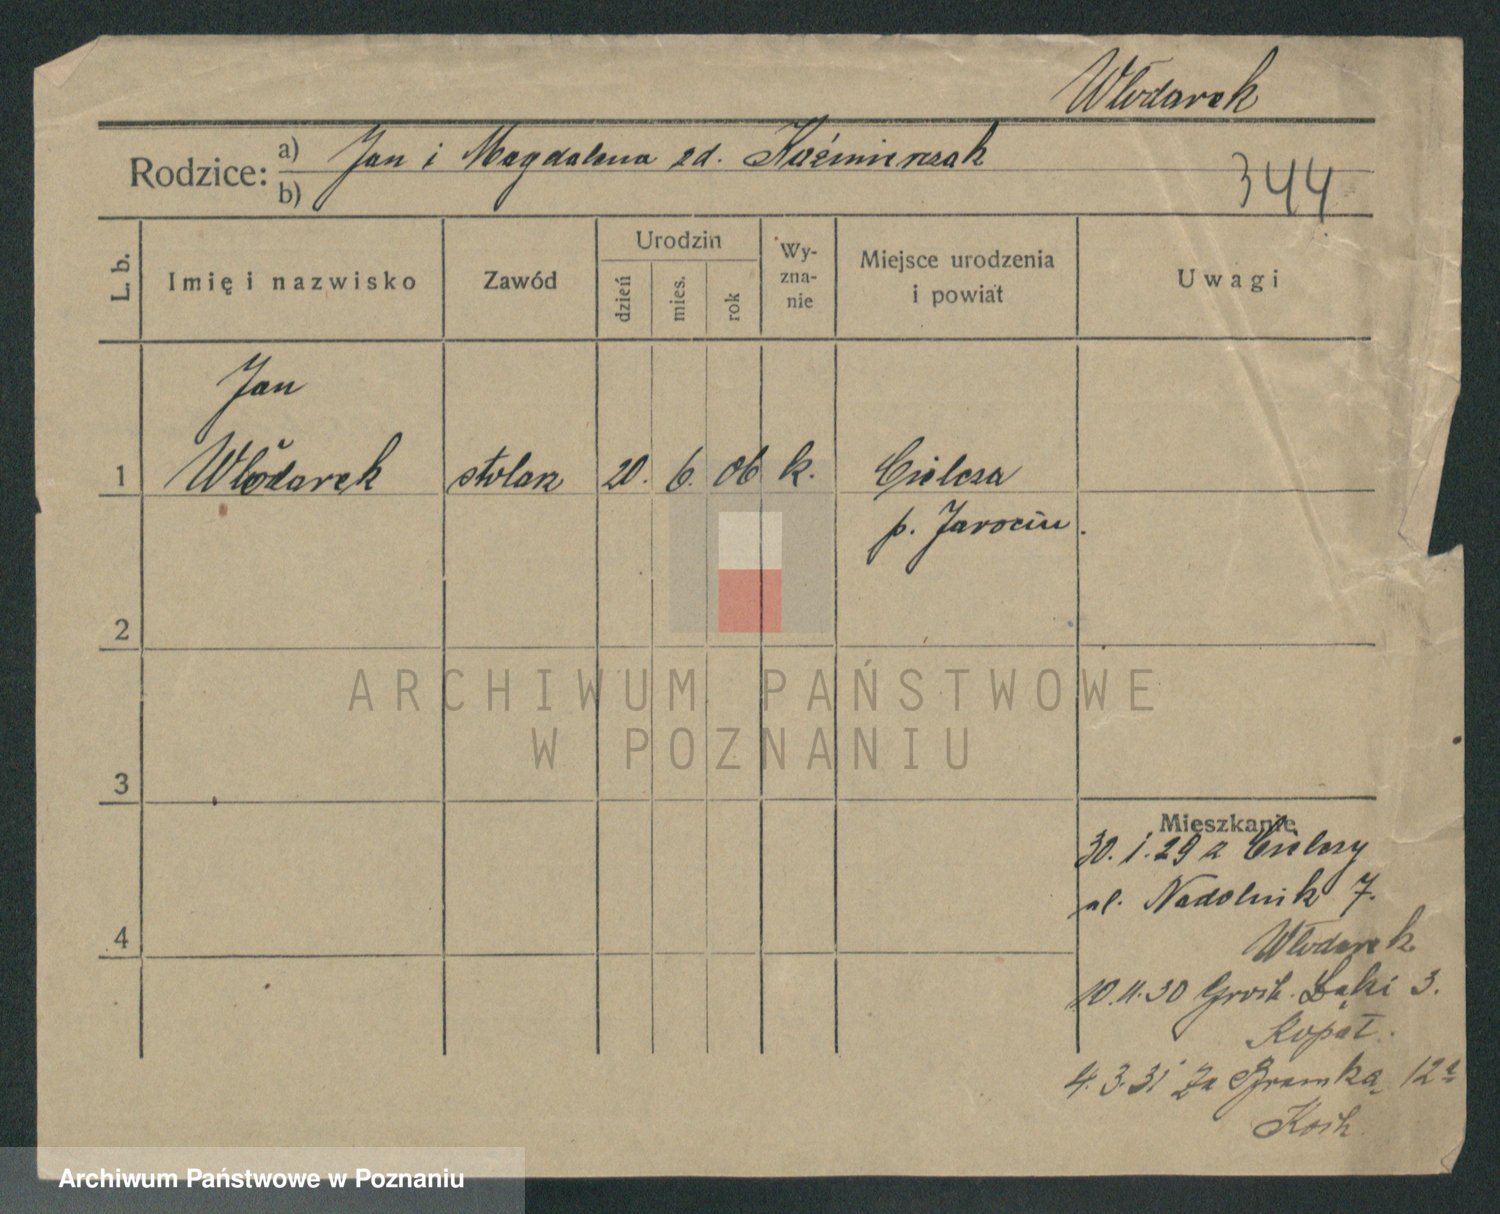 Włodarek
Rodzice: a) Jan i Magdalena zd. Kaźmierczak
b)
344
L. b.
Imię i nazwisko
Zawód
Urodzin
dzień
mies.
rok
Wy-
zna-
nie
Miejsce urodzenia
i powiat
Uwagi
Jan
1 Włodarek stolarz 20. 6. 06 k. Cielcza
p. Jarocin.
2
ARCHIWUM PAŃSTWOWE
W POZNANIU
3
Mieszkanie
30.1.29 z Cielczy
ul. Nadolnik 7.
4
Włodarek
10.11.30 Grob. Łąki 3.
Kopat.
4.3.31 Za Bramką 12a
Kosik
Archiwum Państwowe w Poznaniu